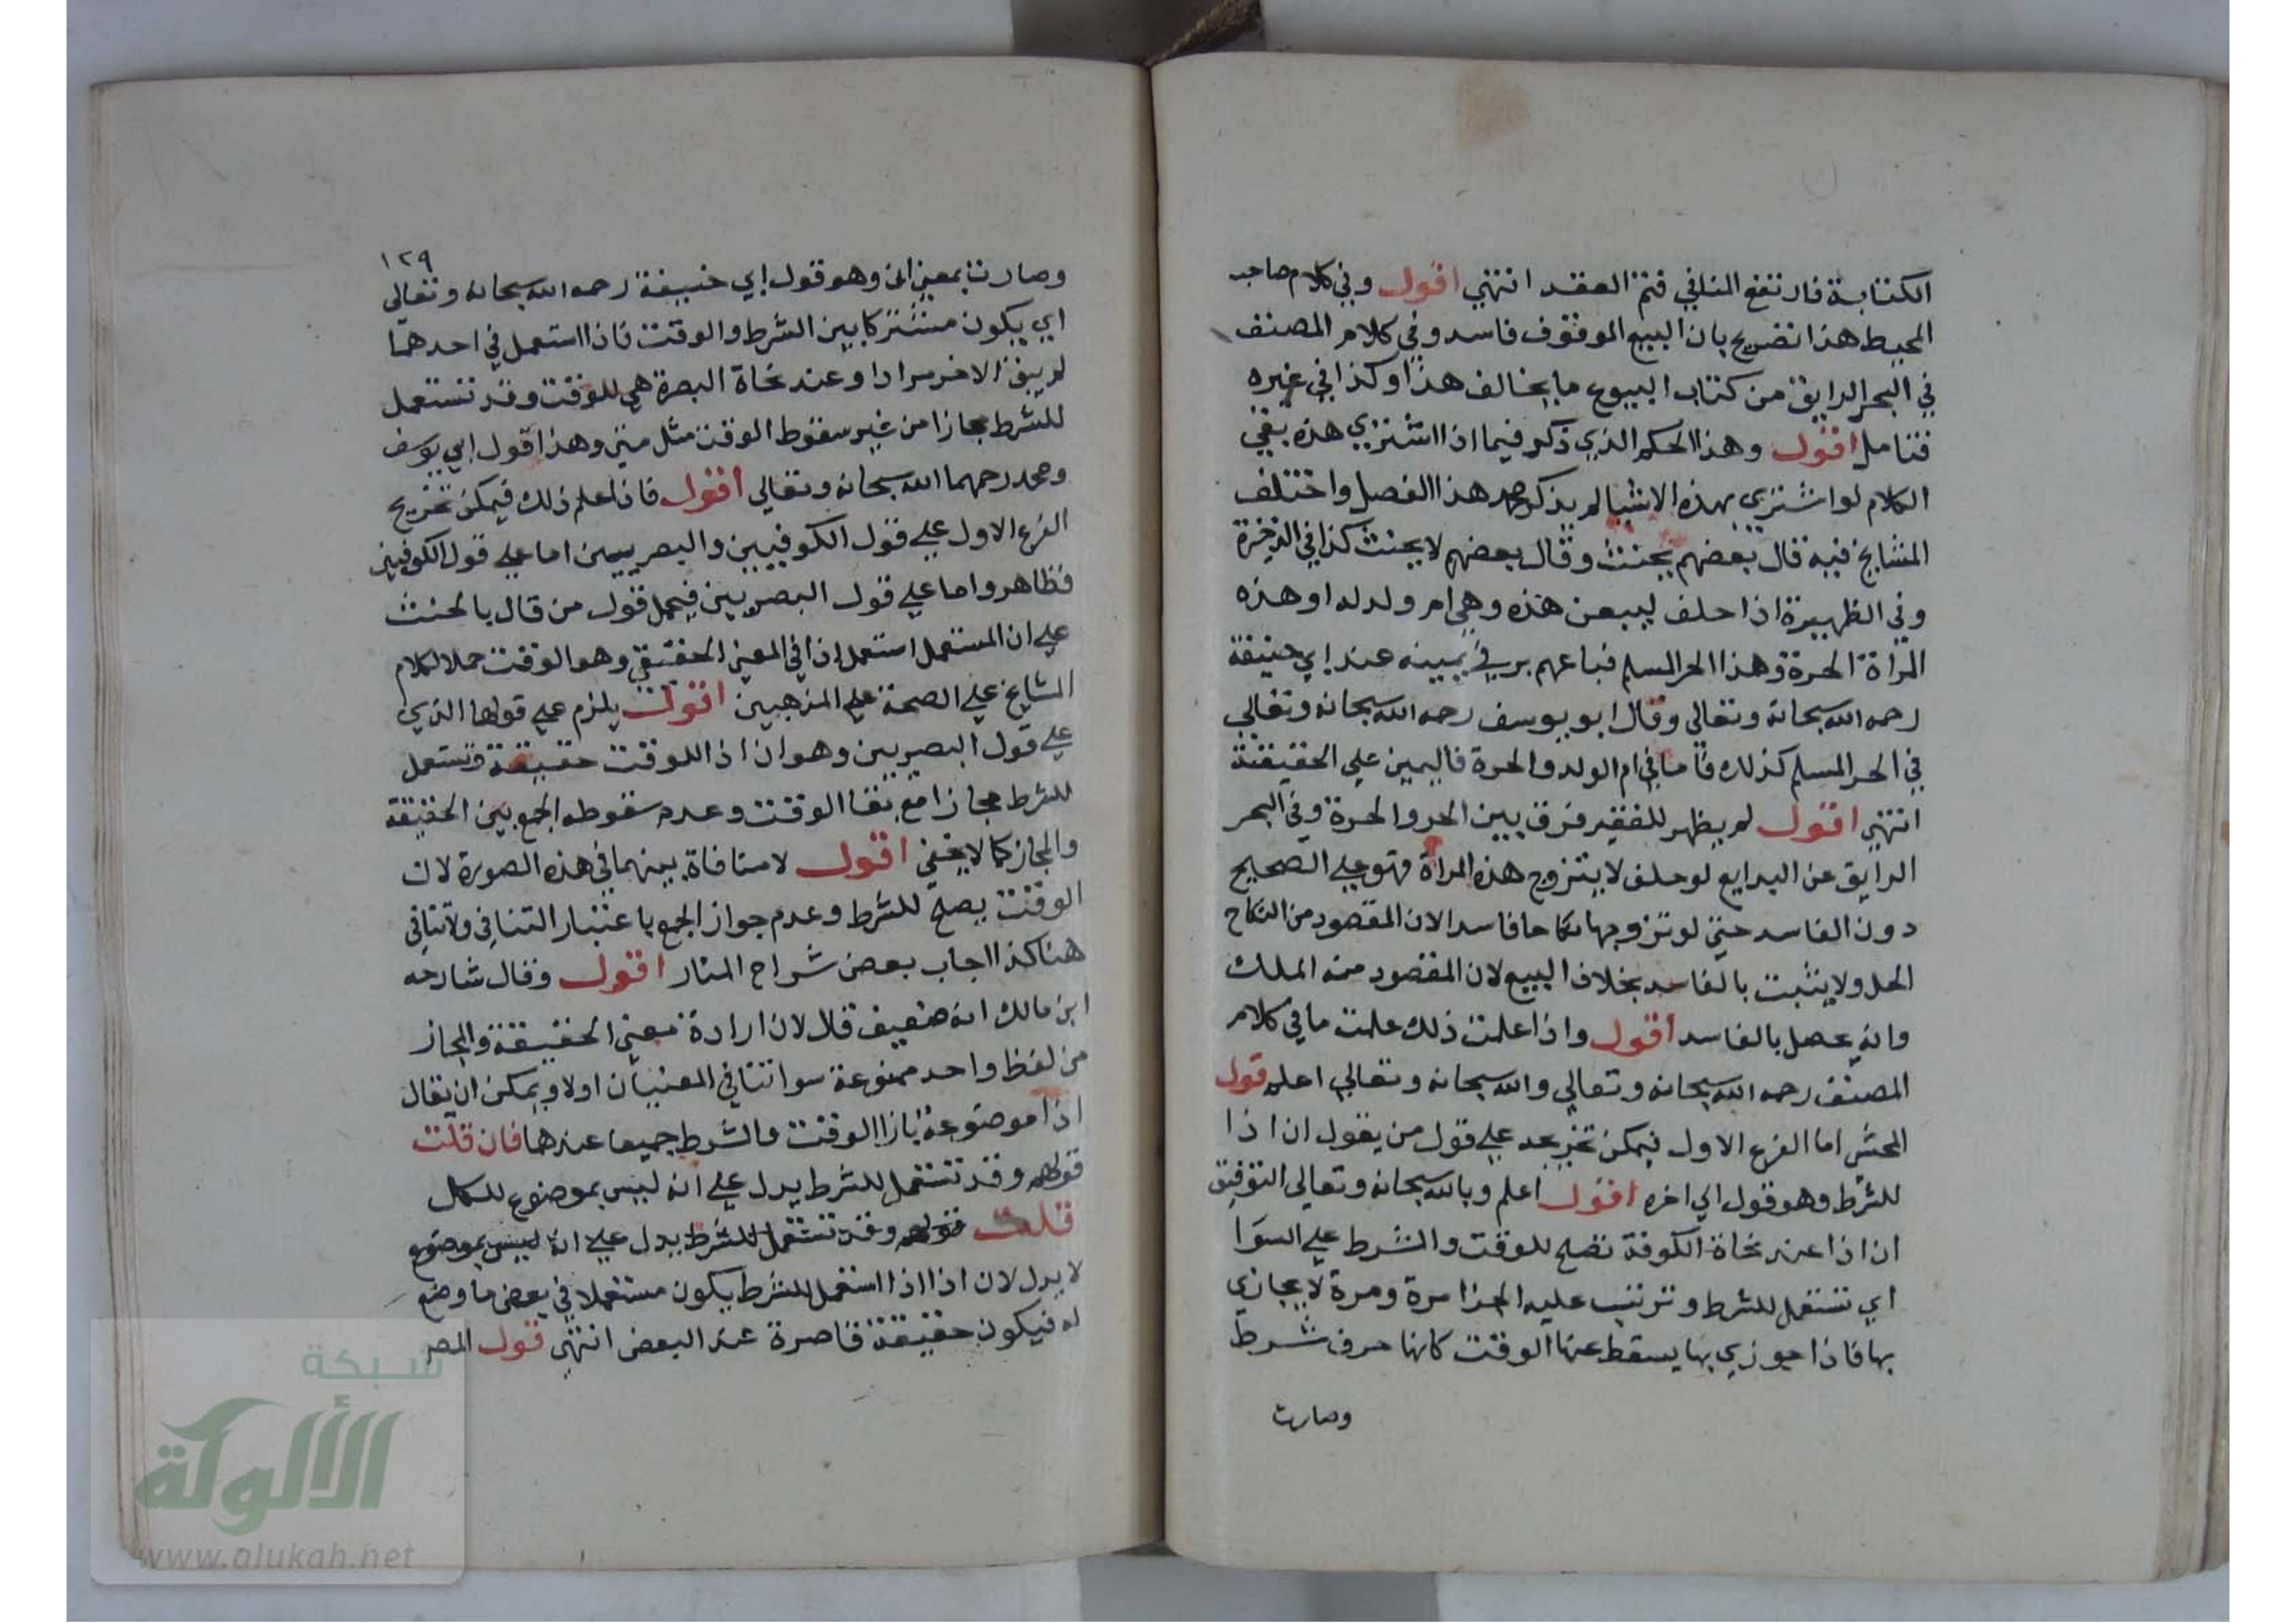 الكتابة فارتفع المنافي فتم العقد انتهي اقول وفي كلام صاحب
المحيط هذا تصريح بان البيع الموقوف فاسد وفي كلام المصنف
في البحر الرايق من كتاب البيوع ما يخالف هذا وكذا في غيره
فتامل اقول وهذا الحكم الذي ذكر فيما اذا اشتري هذه بقي
الكلام لو اشتري بهذه الاشيا لم يذكر محمد هذا الفصل واختلف
المشايخ فيه قال بعضهم يحنث وقال بعضهم لا يحنث كذا في الذخيرة
وفي الظهيرة اذا حلف ليبيعن هذه وهي ام ولد له او هذه
المراة الحرة وهذا الحر المسلم فباعهم بر في يمينه عند ابي حنيفة
رحمه الله سبحانه وتعالي وقال ابو يوسف رحمه الله سبحانه وتعالي
في الحر المسلم كذلك فاما في ام الولد والحرة فاليمين علي الحقيقة
انتهي اقول لم يظهر للفقير فرق بين الحر والحرة وفي البحر
الرايق عن البدايع لو حلف لا يتزوج هذه المراة فهو علي الصحيح
دون الفاسد حتي لو تزوجها نكاحا فاسدا لان المقصود من النكاح
الحل ولا يثبت بالفاسد بخلاف البيع لان المقصود منه الملك
وانه يحصل بالفاسد اقول واذا علمت ذلك علمت ما في كلام
المصنف رحمه الله سبحانه وتعالي والله سبحانه وتعالي اعلم قول
المحشي اما الفرع الاول فيمكن تخريجه علي قول من يقول ان اذا
للشرط وهو قول الي اخره اقول اعلم وبالله سبحانه وتعالي التوفيق
ان اذا عند نحاة الكوفة تصلح للوقت والشرط علي السوا
اي تستعمل للشرط وترتب عليه الجزا مرة ومرة لا يجازي
بها فاذا جوزي بها يسقط عنها الوقت كانها حرف شرط
وصارت
١٢٩
وصارت بمعني ان وهو قول ابي حنيفة رحمه الله سبحانه وتعالي
اي يكون مشتركا بين الشرط والوقت فاذا استعمل في احدهما
لم يبق الاخر مرادا وعند نحاة البصرة هي للوقت وقد تستعمل
للشرط مجازا من غير سقوط الوقت مثل متي وهذا قول ابي يوسف
ومحمد رحمهما الله سبحانه وتعالي اقول فاذا علم ذلك فيمكن تخريج
الفرع الاول علي قول الكوفيين والبصريين اما علي قول الكوفيين
فظاهر واما علي قول البصريين فيحمل قول من قال بالحنث
علي ان المستعمل استعمل اذا في المعني الحقيقي وهو الوقت حملا لكلام
المشايخ علي الصحة علي المذهبين اقول يلزم علي قولهما الذي
علي قول البصريين وهو ان اذا للوقت حقيقة وتستعمل
للشرط مجازا مع بقا الوقت وعدم سقوطه الجمع بين الحقيقة
والمجاز كما لا يخفي اقول لا منافاة بينهما في هذه الصورة لان
الوقت يصلح للشرط وعدم جواز الجمع باعتبار التنافي ولا تنافي
هنا كذا اجاب بعض شراح المنار اقول وقال شارحه
ابن مالك انه ضعيف قال لان ارادة معني الحقيقة والمجاز
من لفظ واحد ممنوعة سوا تنافي المعنيان اولا ويمكن ان يقال
اذا موضوعة بازا الوقت والشرط جميعا عندهما فان قلت
قولهم وقد تستعمل للشرط يدل علي انه ليس بموضوع للكل
قلت قولهم وقد تستعمل للشرط يدل علي انه ليس بموضوع
لا يدل لان اذا اذا استعمل للشرط يكون مستعملا في بعض ما وضع
له فيكون حقيقة قاصرة عند البعض انتهي قول المص
شبكة
الألوكة
www.alukah.net